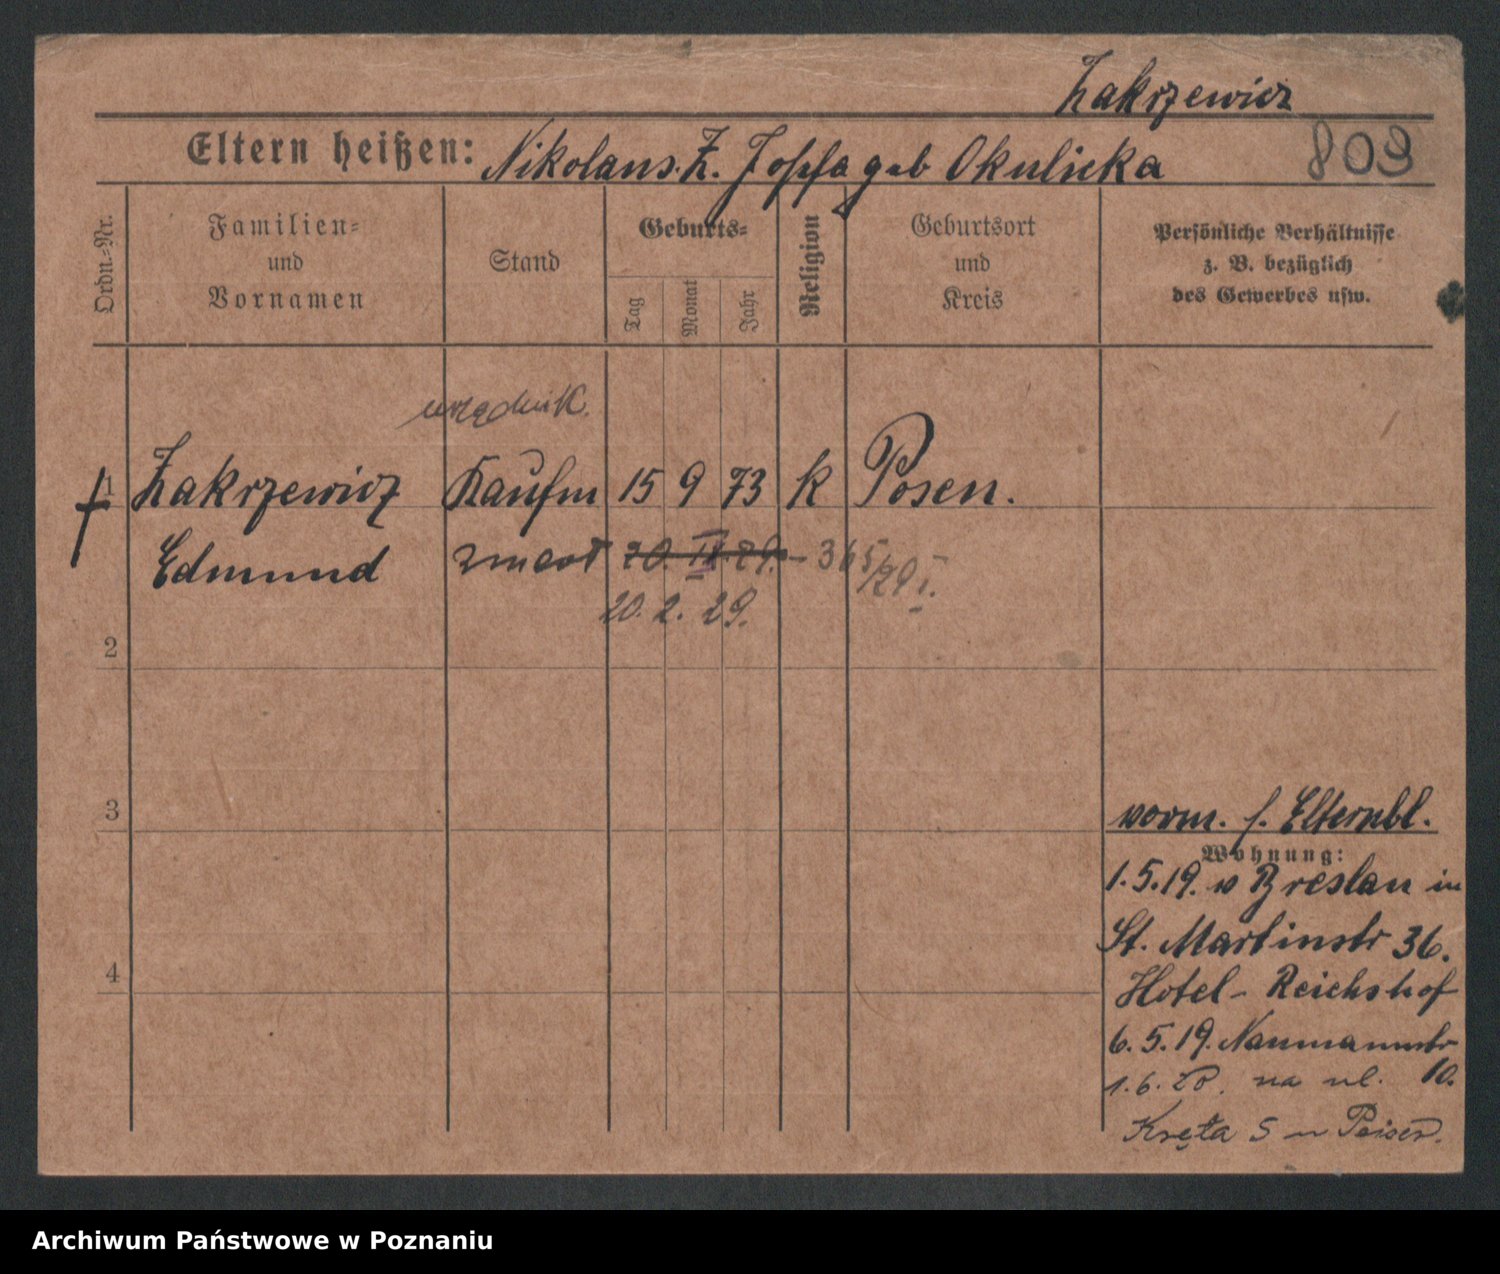 Zakrzewicz
Eltern heißen: Nikolaus Z. Josefa geb Okulicka
803
Ordn.-Nr.
Familien-
und
Vornamen
Stand
Geburts-
Tag
Monat
Jahr
Religion
Geburtsort
und
Kreis
Persönliche Verhältnisse
z. B. bezüglich
des Gewerbes usw.
urzędnik.
1 Zakrzewicz Kaufm 15 9 73 k Posen.
Edmund zmarł 20. II. 29. – 365/29 I.
20. 2. 29.
2
3
4
vorm. s. Elternbl.
Wohnung:
1.5.19. v Breslau in
St. Martinstr 36.
Hotel - Reichshof
6. 5. 19. Naumannstr
10.
1. 6. 20. na ul.
Kręta 5 u Peiser.
Archiwum Państwowe w Poznaniu